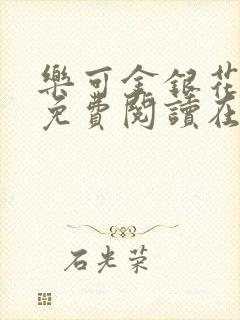 樂可金銀花
免費閱讀在
石光荣